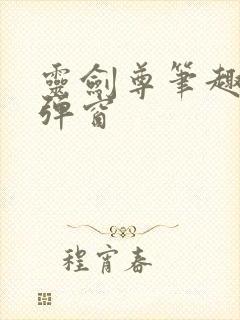 靈劍尊筆趣
彈窗
程宵春